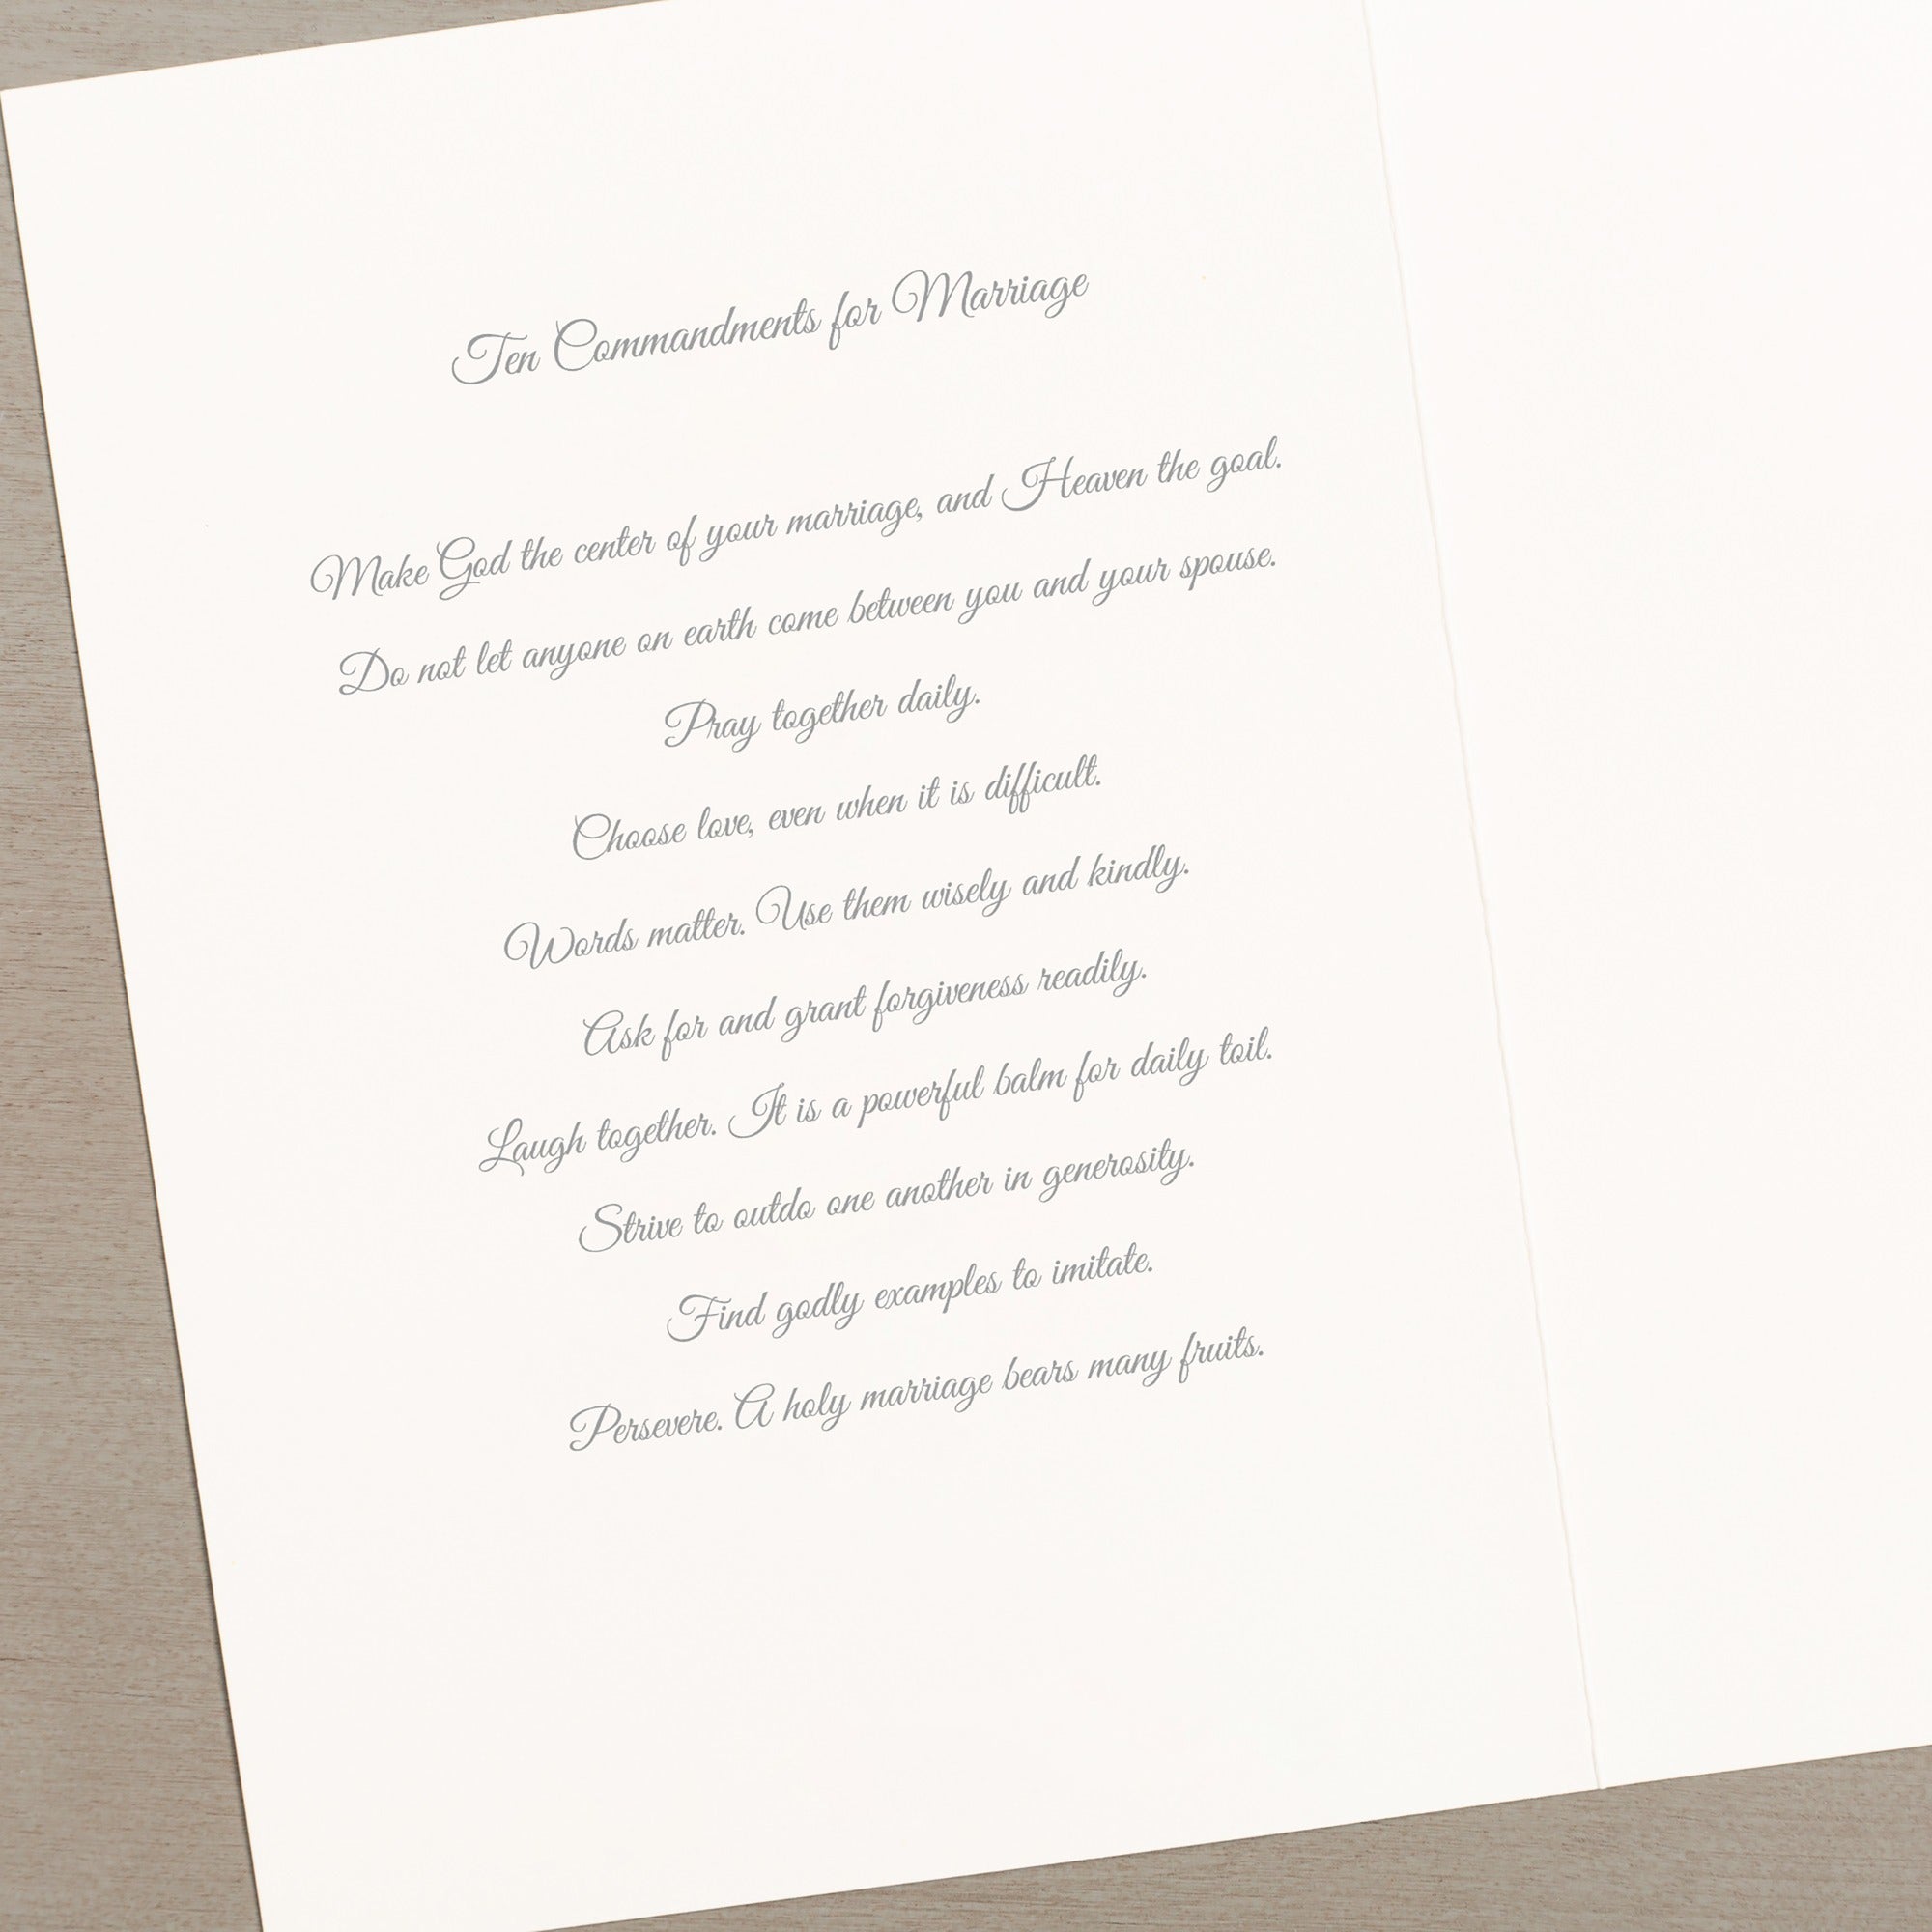 Ten Commandments for Marriage
Make God the center of your marriage, and Heaven the goal.
Do not let anyone on earth come between you and your spouse.
Pray together daily.
Choose love, even when it is difficult.
Words matter. Use them wisely and kindly.
Ask for and grant forgiveness readily.
Laugh together. It is a powerful balm for daily toil.
Strive to outdo one another in generosity.
Find godly examples to imitate.
Persevere. A holy marriage bears many fruits.